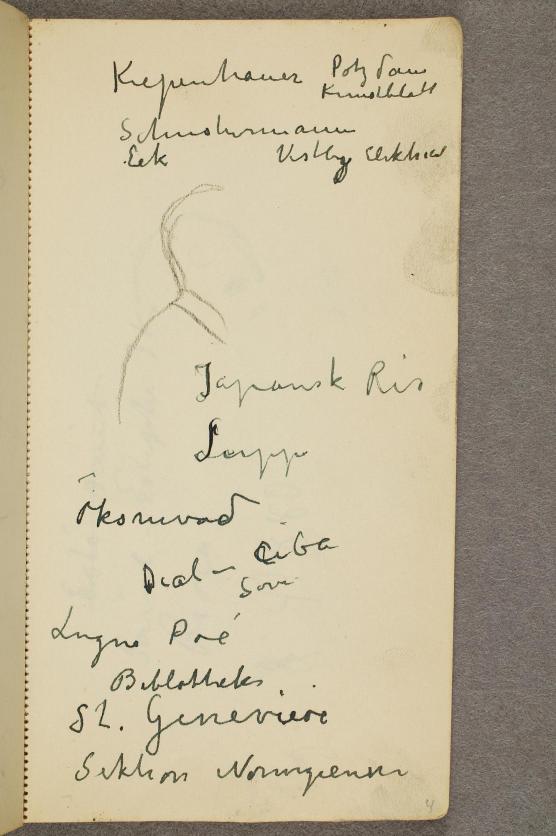 Kiepenheuer Potsdam
Kunstblatt
Schustermann
Eck Vestby Elektrisk
Japansk Ris
Suppe
Dial – Ciba
Sovi
Lugne Poé
Bibliotheks
St. Genevieve
Sektion Norvegienne
4